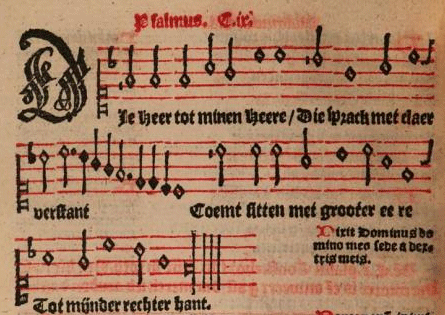 Psalmus. C.ix.
DJe Heer tot minen Heere / Die sprack met claer
verstant Coemt sitten met grooter ee re
Dixit Dominus do
mino meo sede a dex-
tris meis.
Tot mijnder rechter hant.